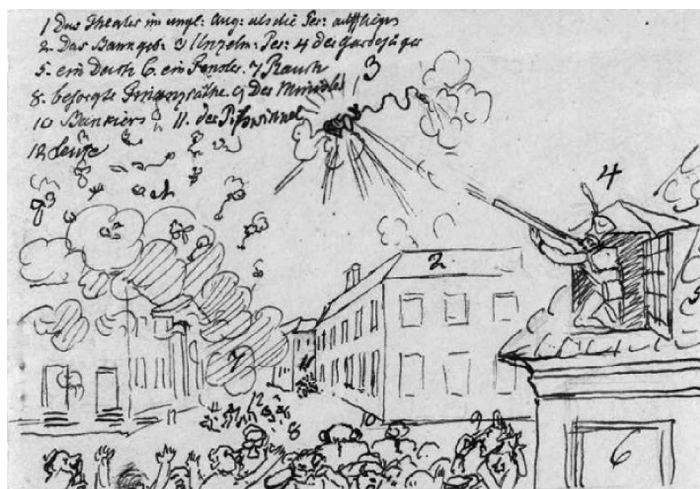 1 Das Theater im ungl: Aug: als die Per: auffliegen
2. Das Bankgeb: 3 Unzelm: Per: 4 der Gardejäger
5. ein Dach 6. ein Fenster. 7 Rauch
8. besorgte Finanzräthe. 9 Der Minister
10 Bankiers 11. der
12 Leute
3
4
2
5
7
11
12
8
10
9
6